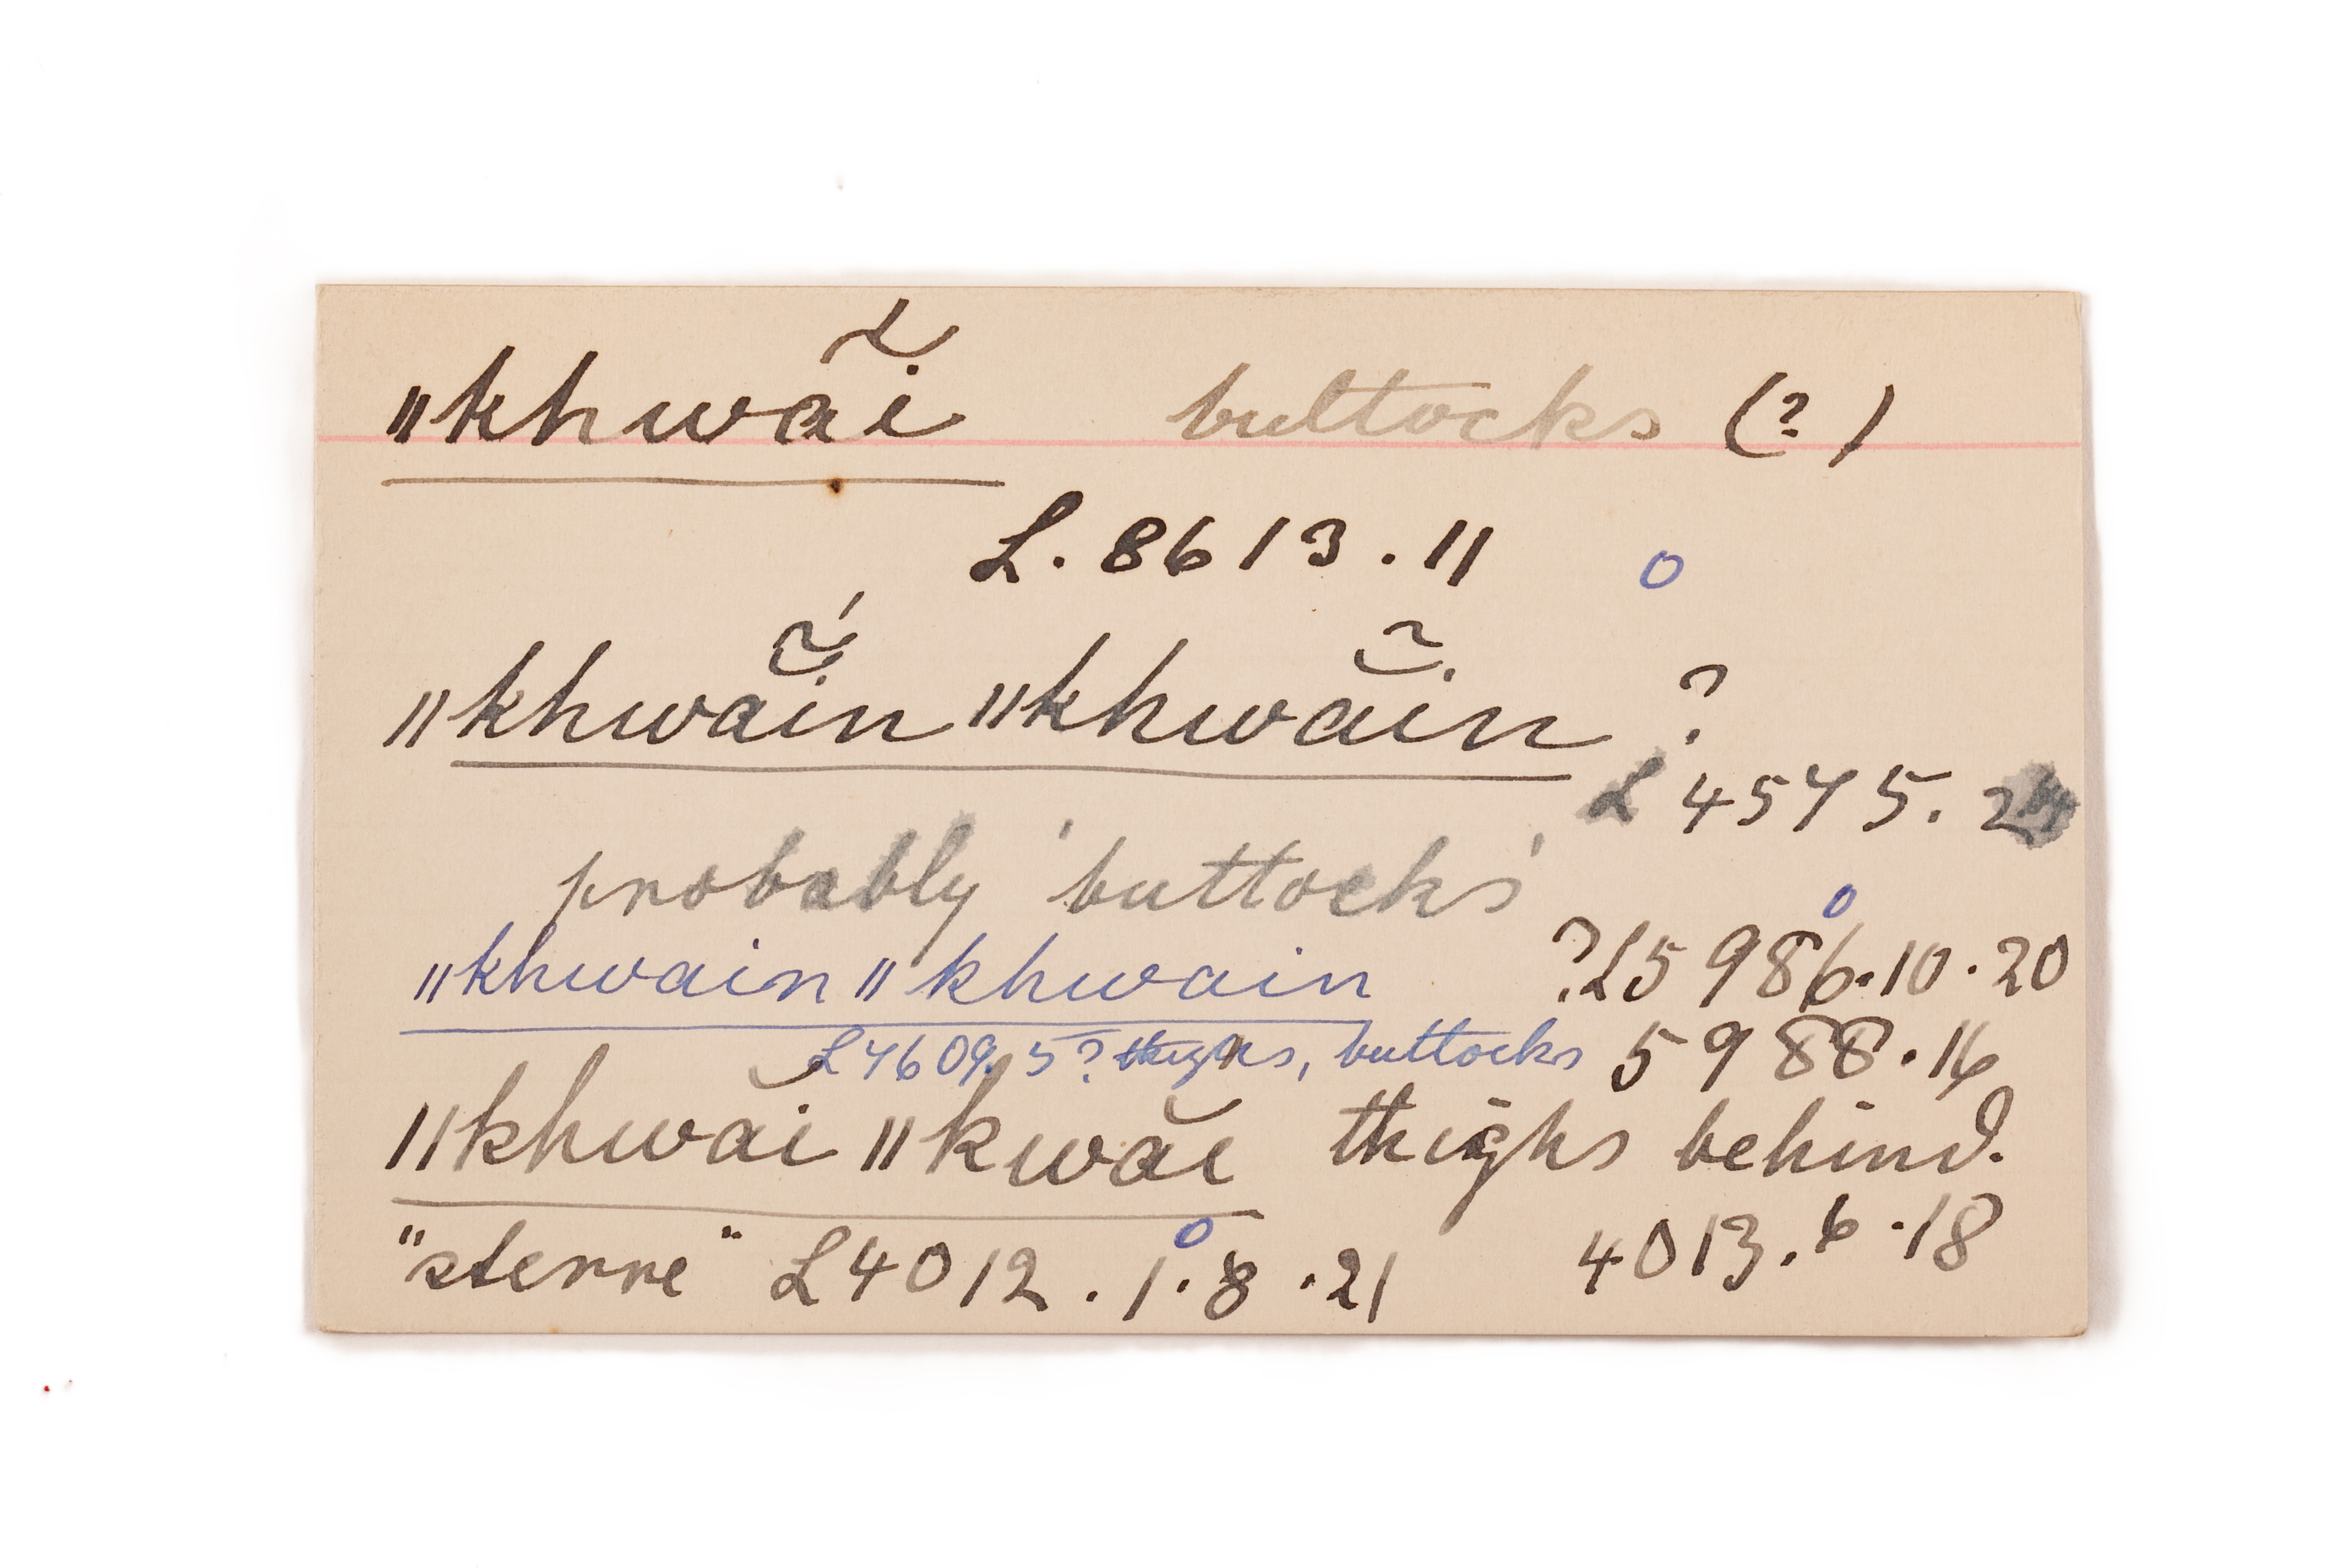 ‖khwãĭ buttocks (?)
L. 8613.11 o
‖khwãĭ́n ‖khwãĭn ?
L 4575. 24
probably 'buttocks'
‖khwain ‖khwain ?L5986.10.20
L7609. 5? thighs, buttocks 5988.16
‖khwăi ‖kwăi thighs behind.
"sterre" L4012.1.8.21 4013.6.18